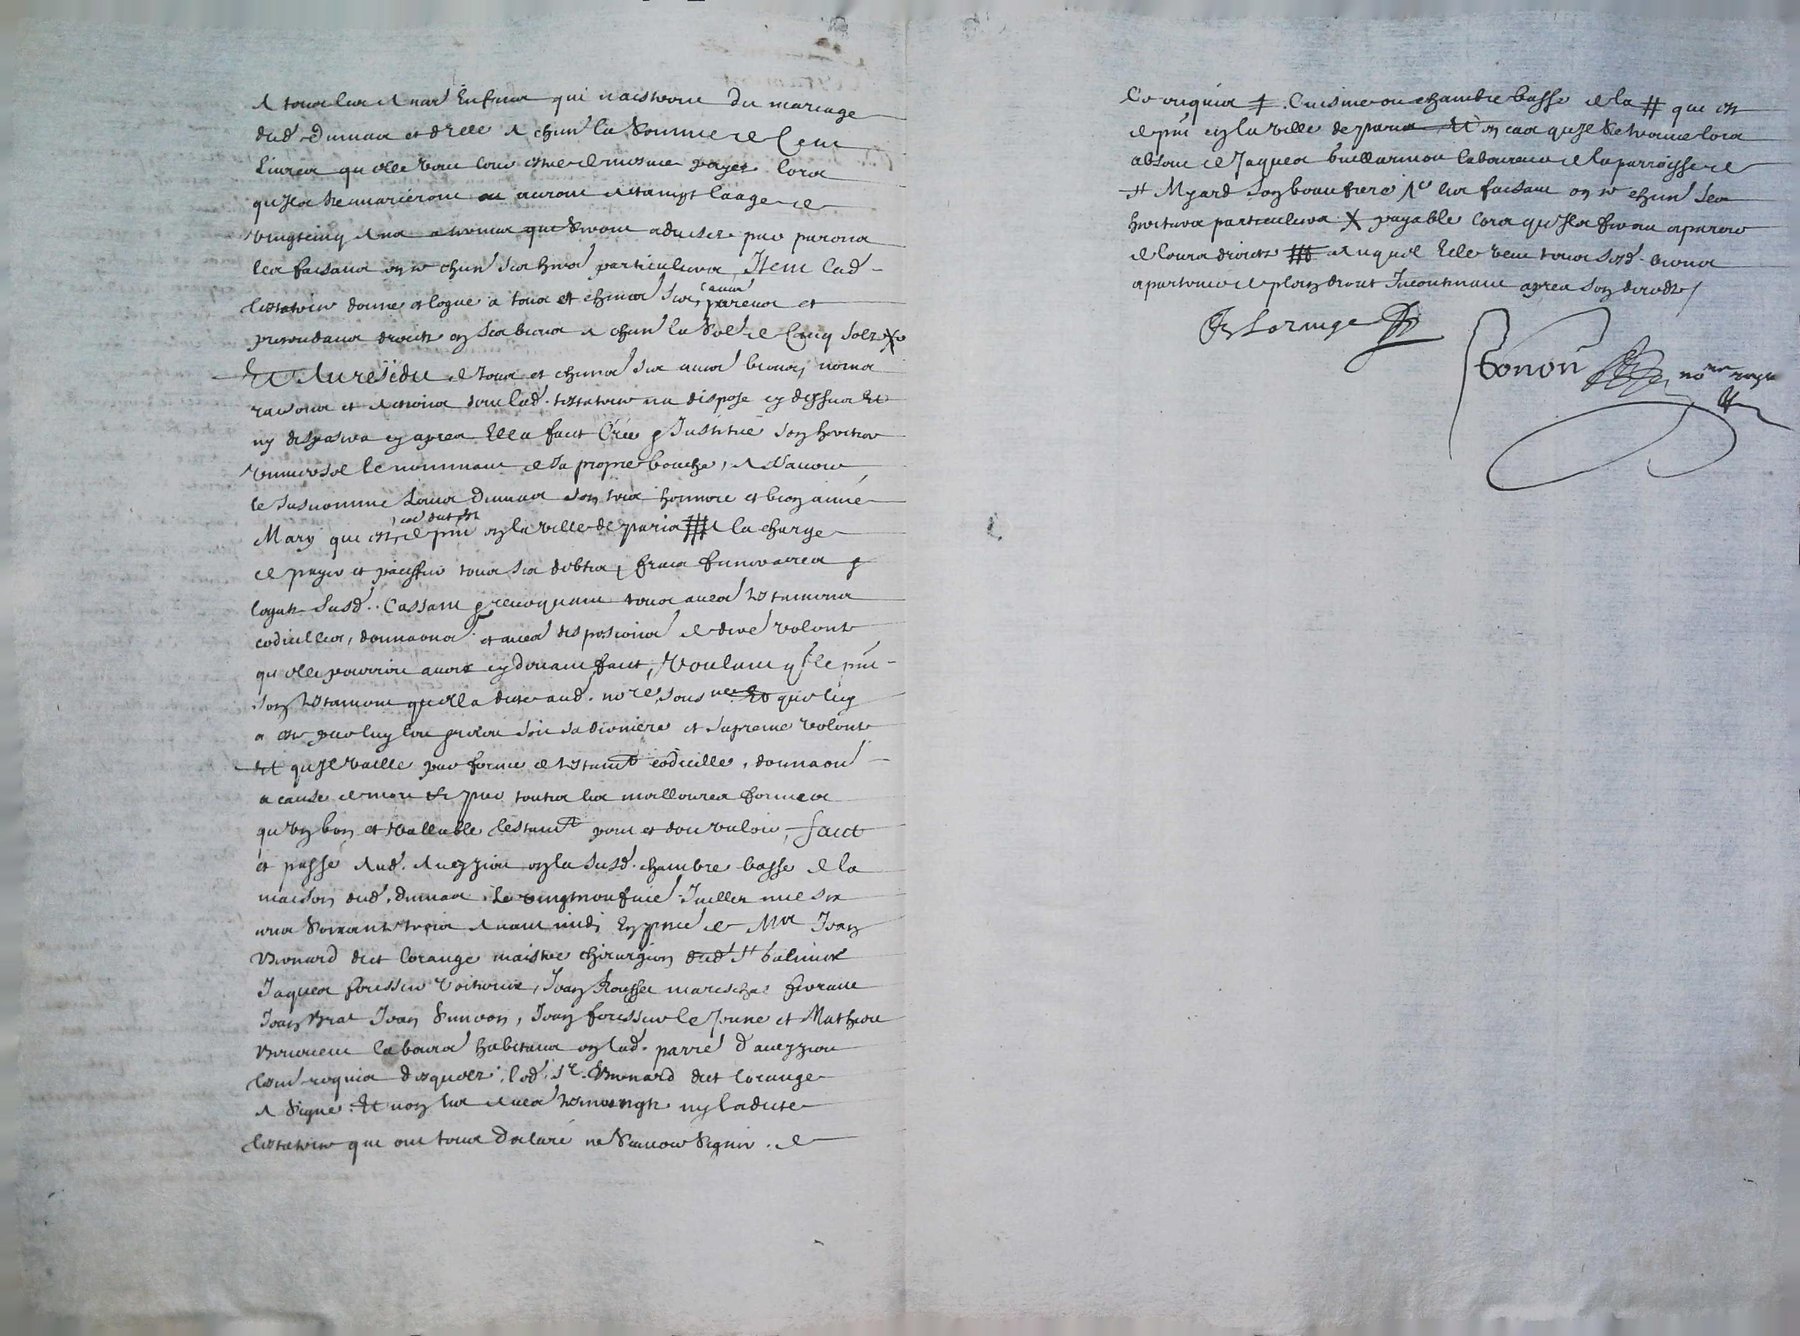 A tous les autres Enfens qui naistront du mariage
dud. Dumas et d'elle A chun la Somme de Cent
Livres qu'elle veut leur estre de mesme payes lors
qu'ils se marieront ou auront attainpt l'aage de
vingtcinq ans a tenir que seront aduisez par parens
les faisans en ce chun ses hers particuliers, Item lad
testatrice donne et legue a tous et chuns ses autres parens et
pretendans droictz en ses biens a chun la So.e de Cinq Solz X
Et Au residu de tous et chuns ses autres biens, noms
raisons et actions dont lad. testatrice na dispose cy dessus Et
ny disposera cy apres Ella faict Crée & Institué son heritier
universel le nommant de sa propre bouche, A Scavoir
le susnomme Dumas son tres honnore et bien aimé
Mary qui est de pnt en la ville de paris A la charge
de payer et paciffier tous ses debtes, frais funeraires &
legatz Susd. Cassant & revoquant tous autres testamens
codicilles, donnaons et autres disposions de dere volonte
qu'elle pourroit avoir cy devant faict, Voulant q. le pnt
son testament quella dicte aud. no.re sous.ne Et que luy
a este par luy leu soit sa derniere et supreme volonte
Et qu'Il vaille par forme de testamt codicille, donnaon
a cause de mort Et par toutes les meilleures formes
qu'un bon et vallable testamt peut et doit valoir, faict
et passé Aud. Auezzieu en la susd. chambre basse de la
maison dud. Dumas Le vingtneufvie Juillet mil six
cens soixante trois Avant midi En pnce de Mre Jean
Benard dict Lorange maistre chirurgien dud St balmier
Jaques foressier voiturier, Jean Rousset mareschal
Jean Brat Jean Simeon, Jean foressier le Jeune et Mathieu
labours habitans en lad. parre d'auezzieu
tesm requis desquelz led. Sr. Benard dict Lorange
A Signé. Et non les autres tesmoingtz ny ladicte
testatrice qui ont tous declaré ne Scavoir Signer. de
Ce requis ‡. Cuisine ou chambre basse de la # qui est
de pnt en la ville de paris Et en cas qu'Il se trouve lors
absent de Jaques laboureur de la parroisse de
St Myard son beau frere Ice les faisant en ce chun Ses
heritiers particuliers X payable lors qu'Ils feront aparoir
de leurs droictz ### Auquel Elle veut tous Sesd. biens
apartenir de plein droict Incontinant apres son decedz /
Lorange
Bonon no.re royal